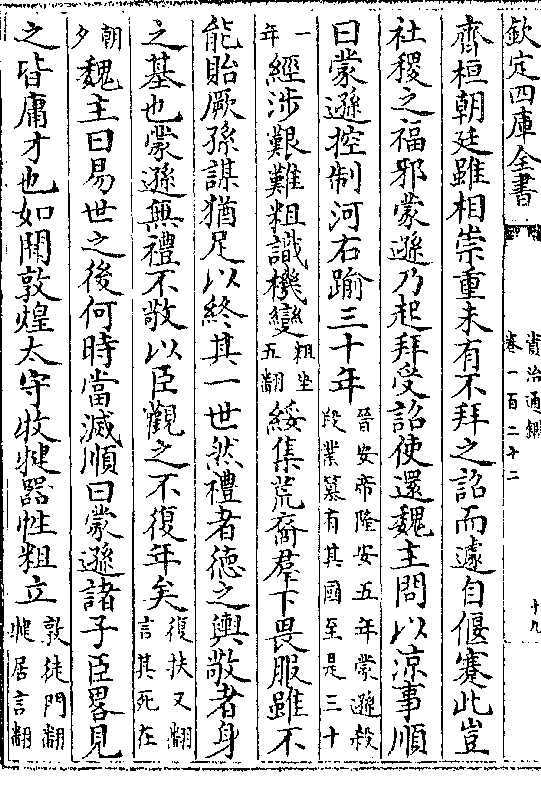 欽定四庫全書
資治通鑑
卷一百二十二
十九
齊桓朝廷雖相崇重未有不拜之詔而遽自偃蹇此豈
社稷之福邪蒙遜乃起拜受詔使還魏主問以涼事順
曰蒙遜控制河右踰三十年晉安帝隆安五年蒙遜殺
段業篡有其國至是三十
一年經涉艱難粗識機變粗坐
五翻綏集荒裔羣下畏服雖不
能貽厥孫謀猶足以終其一世然禮者德之輿敬者身
之基也蒙遜無禮不敬以臣觀之不復年矣復扶又翻
言其死在
朝
夕魏主曰易世之後何時當滅順曰蒙遜諸子臣畧見
之皆庸才也如聞敦煌太守牧犍器性粗立敦徒門翻
犍居言翻